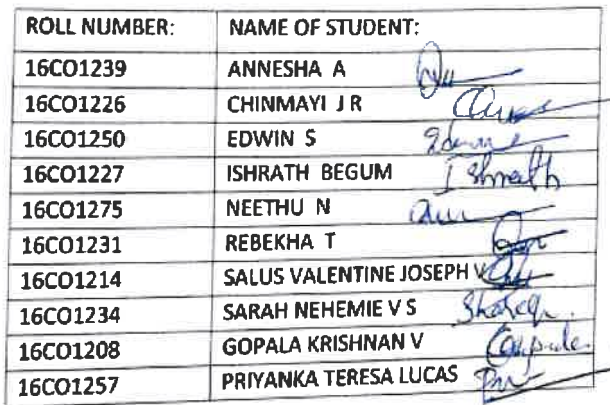 ROLL NUMBER: NAME OF STUDENT:
16CO1239 ANNESHA A
16CO1226 CHINMAYI J R
16CO1250 EDWIN S
16CO1227 ISHRATH BEGUM Ishrath
16CO1275 NEETHU N
16CO1231 REBEKHA T
16CO1214 SALUS VALENTINE JOSEPH V
16CO1234 SARAH NEHEMIE V S
16CO1208 GOPALA KRISHNAN V
16CO1257 PRIYANKA TERESA LUCAS